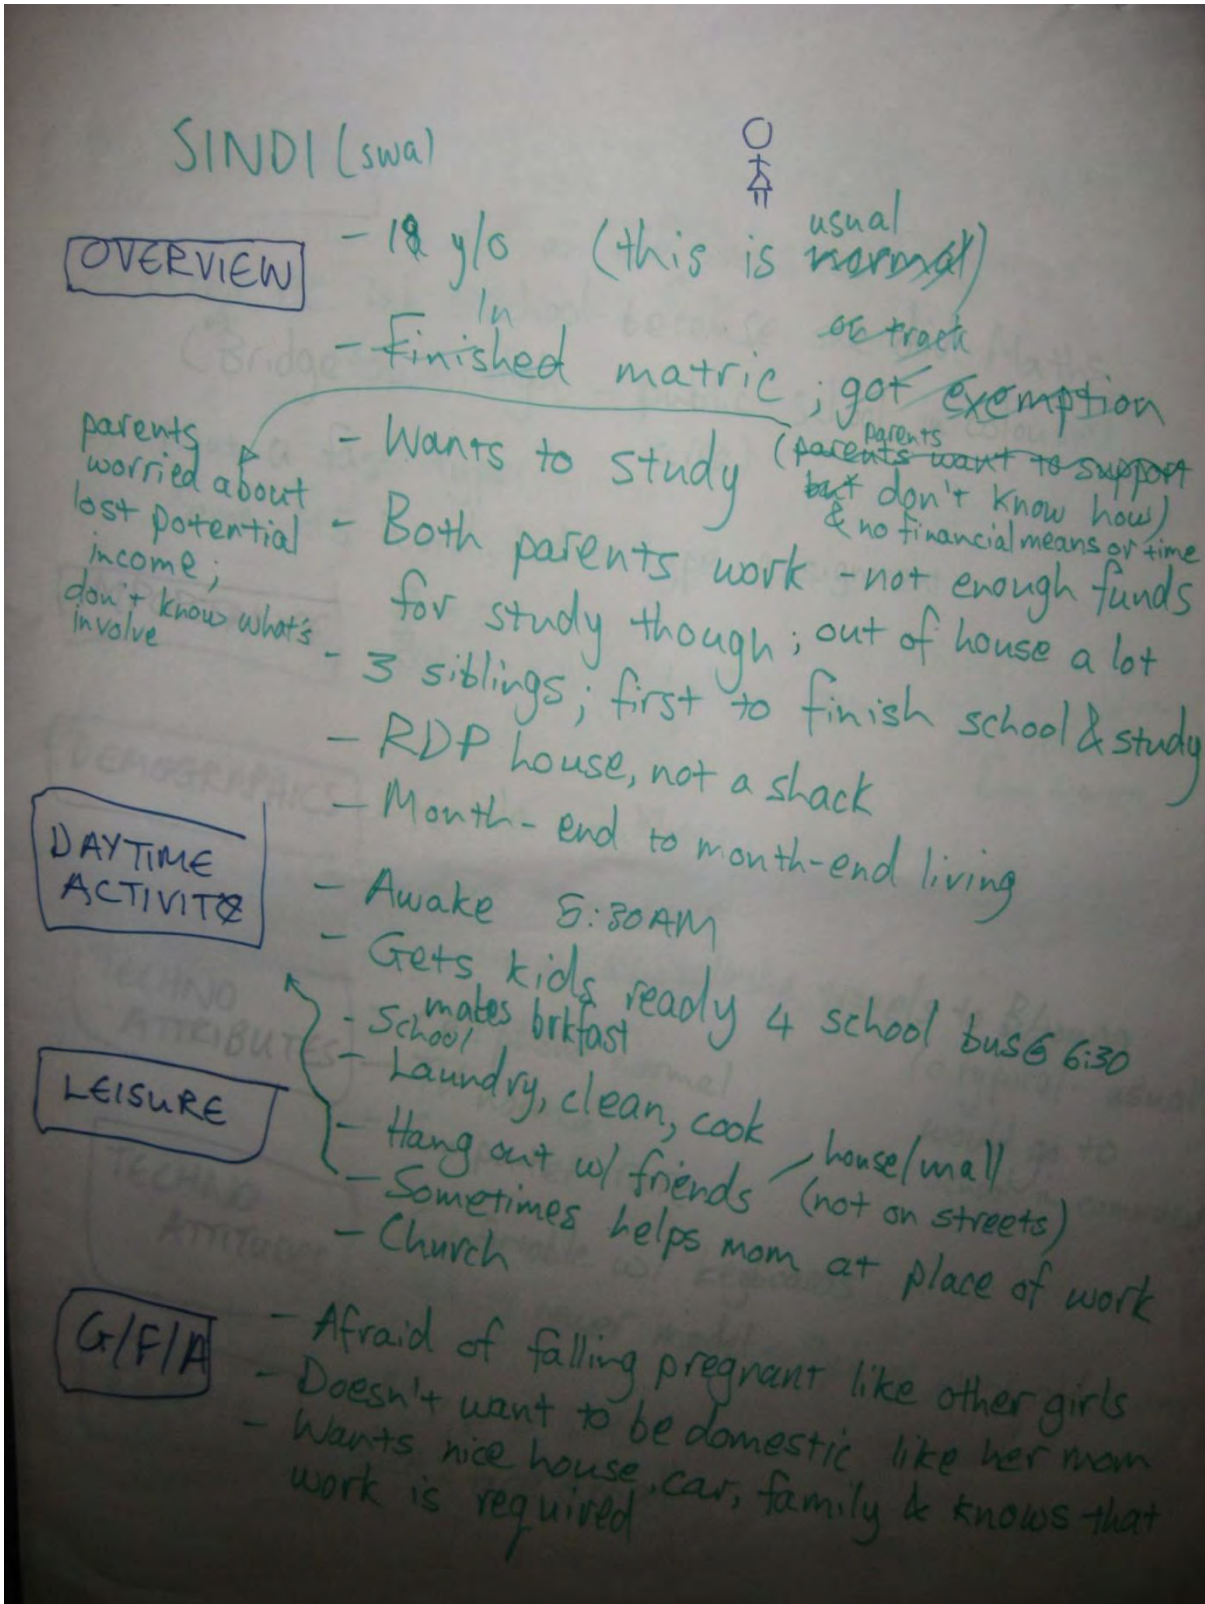 SINDI (swa)
OVERVIEW
- 18 y/o (this is normal) usual
- Finished In matric ; got exemption
on track
- Wants to study (parents want to support
parents
but don't know how)
& no financial means or time
parents
worried about
lost potential
income;
don't know what's
involve
- Both parents work - not enough funds
for study though ; out of house a lot
- 3 siblings ; first to finish school & study
- RDP house, not a shack
- Month-end to month-end living
DAYTIME
ACTIVIT
- Awake 5:30AM
- Gets kids ready 4 school bus@ 6:30
makes brkfast
- School
- Laundry, clean, cook
LEISURE
- Hang out w/ friends house/mall
(not on streets)
- Sometimes helps mom at place of work
- Church
G/F/A
- Afraid of falling pregnant like other girls
- Doesn't want to be domestic like her mom
- Wants nice house, car, family & knows that
work is required
DEMOGRAPHICS
TECHNO
ATTRIBUTES
TECHNO
ATTITUDES